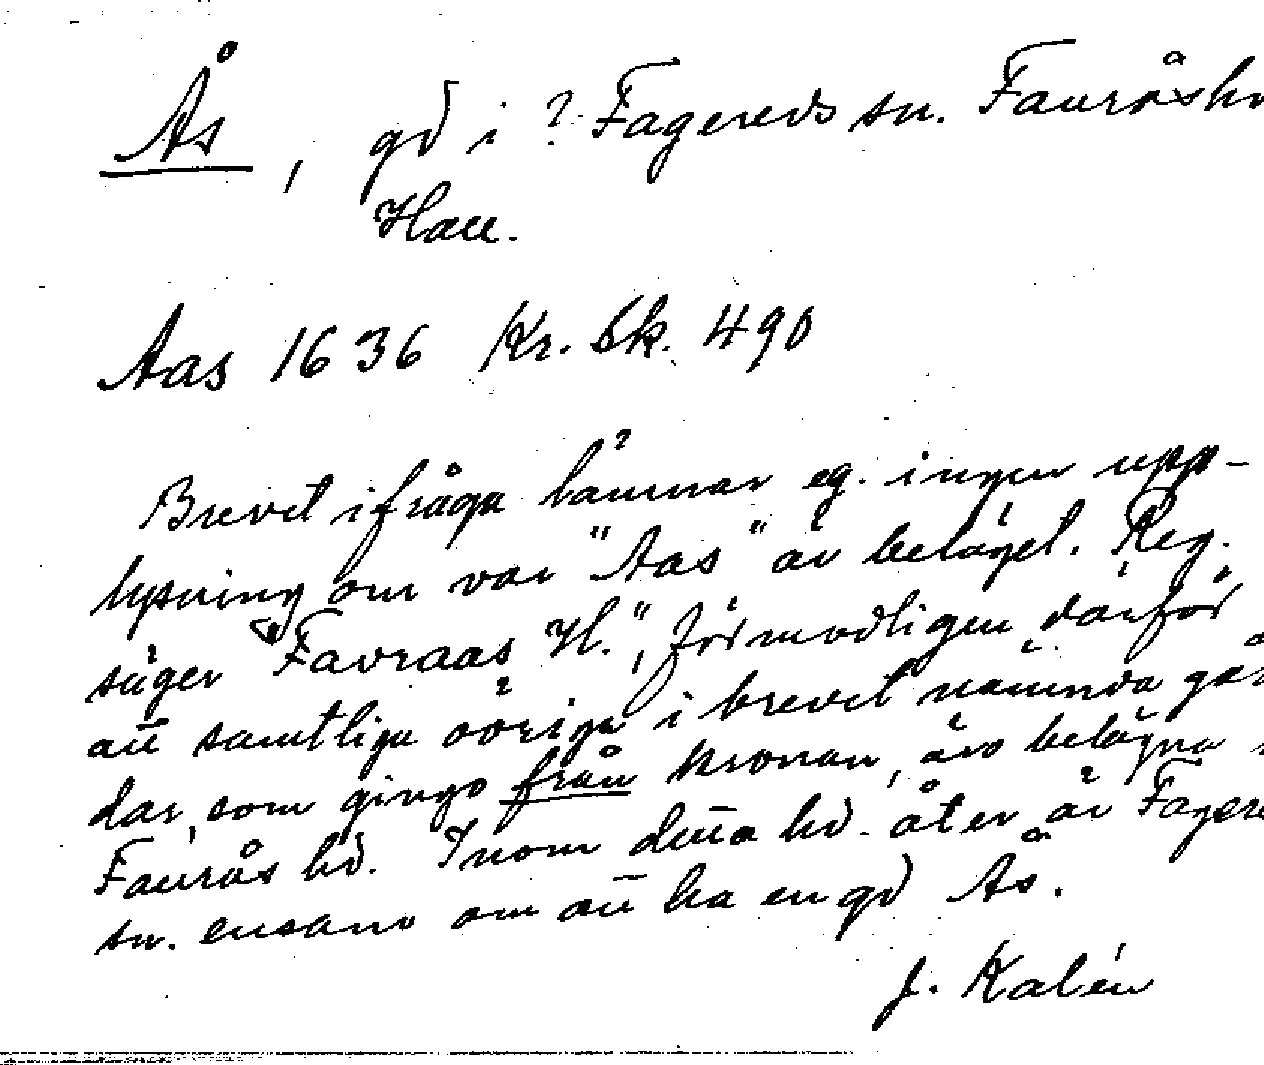 Ås, gd i ? Fagereds sn. Fauråshd
Hall.
Aas 1636 Kr. Sk. 490
Brevet ifråga lämnar eg. ingen upp-
lysning om var "Aas" är beläget. Reg.
säger "Favraas H.", förmodligen därför
att samtliga övriga i brevet nämnda går
dar, som gingo från kronan, äro belägna i
Faurås hd. Inom detta hd. åter är Fagere
sn. ensam om att ha en gd Ås.
J. Kalén